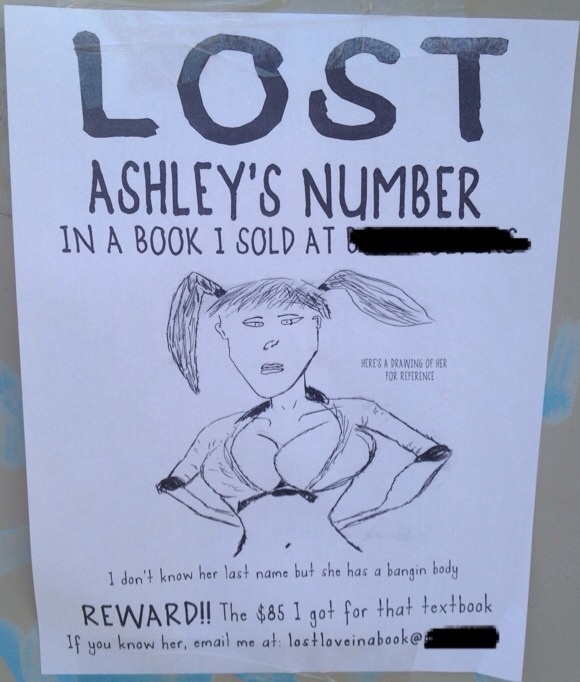 LOST
ASHLEY'S NUMBER
IN A BOOK I SOLD AT
HERE'S A DRAWING OF HER
FOR REFERENCE
I don't know her last name but she has a bangin body
REWARD!! The $85 I got for that textbook
If you know her, email me at: lostloveinabook@